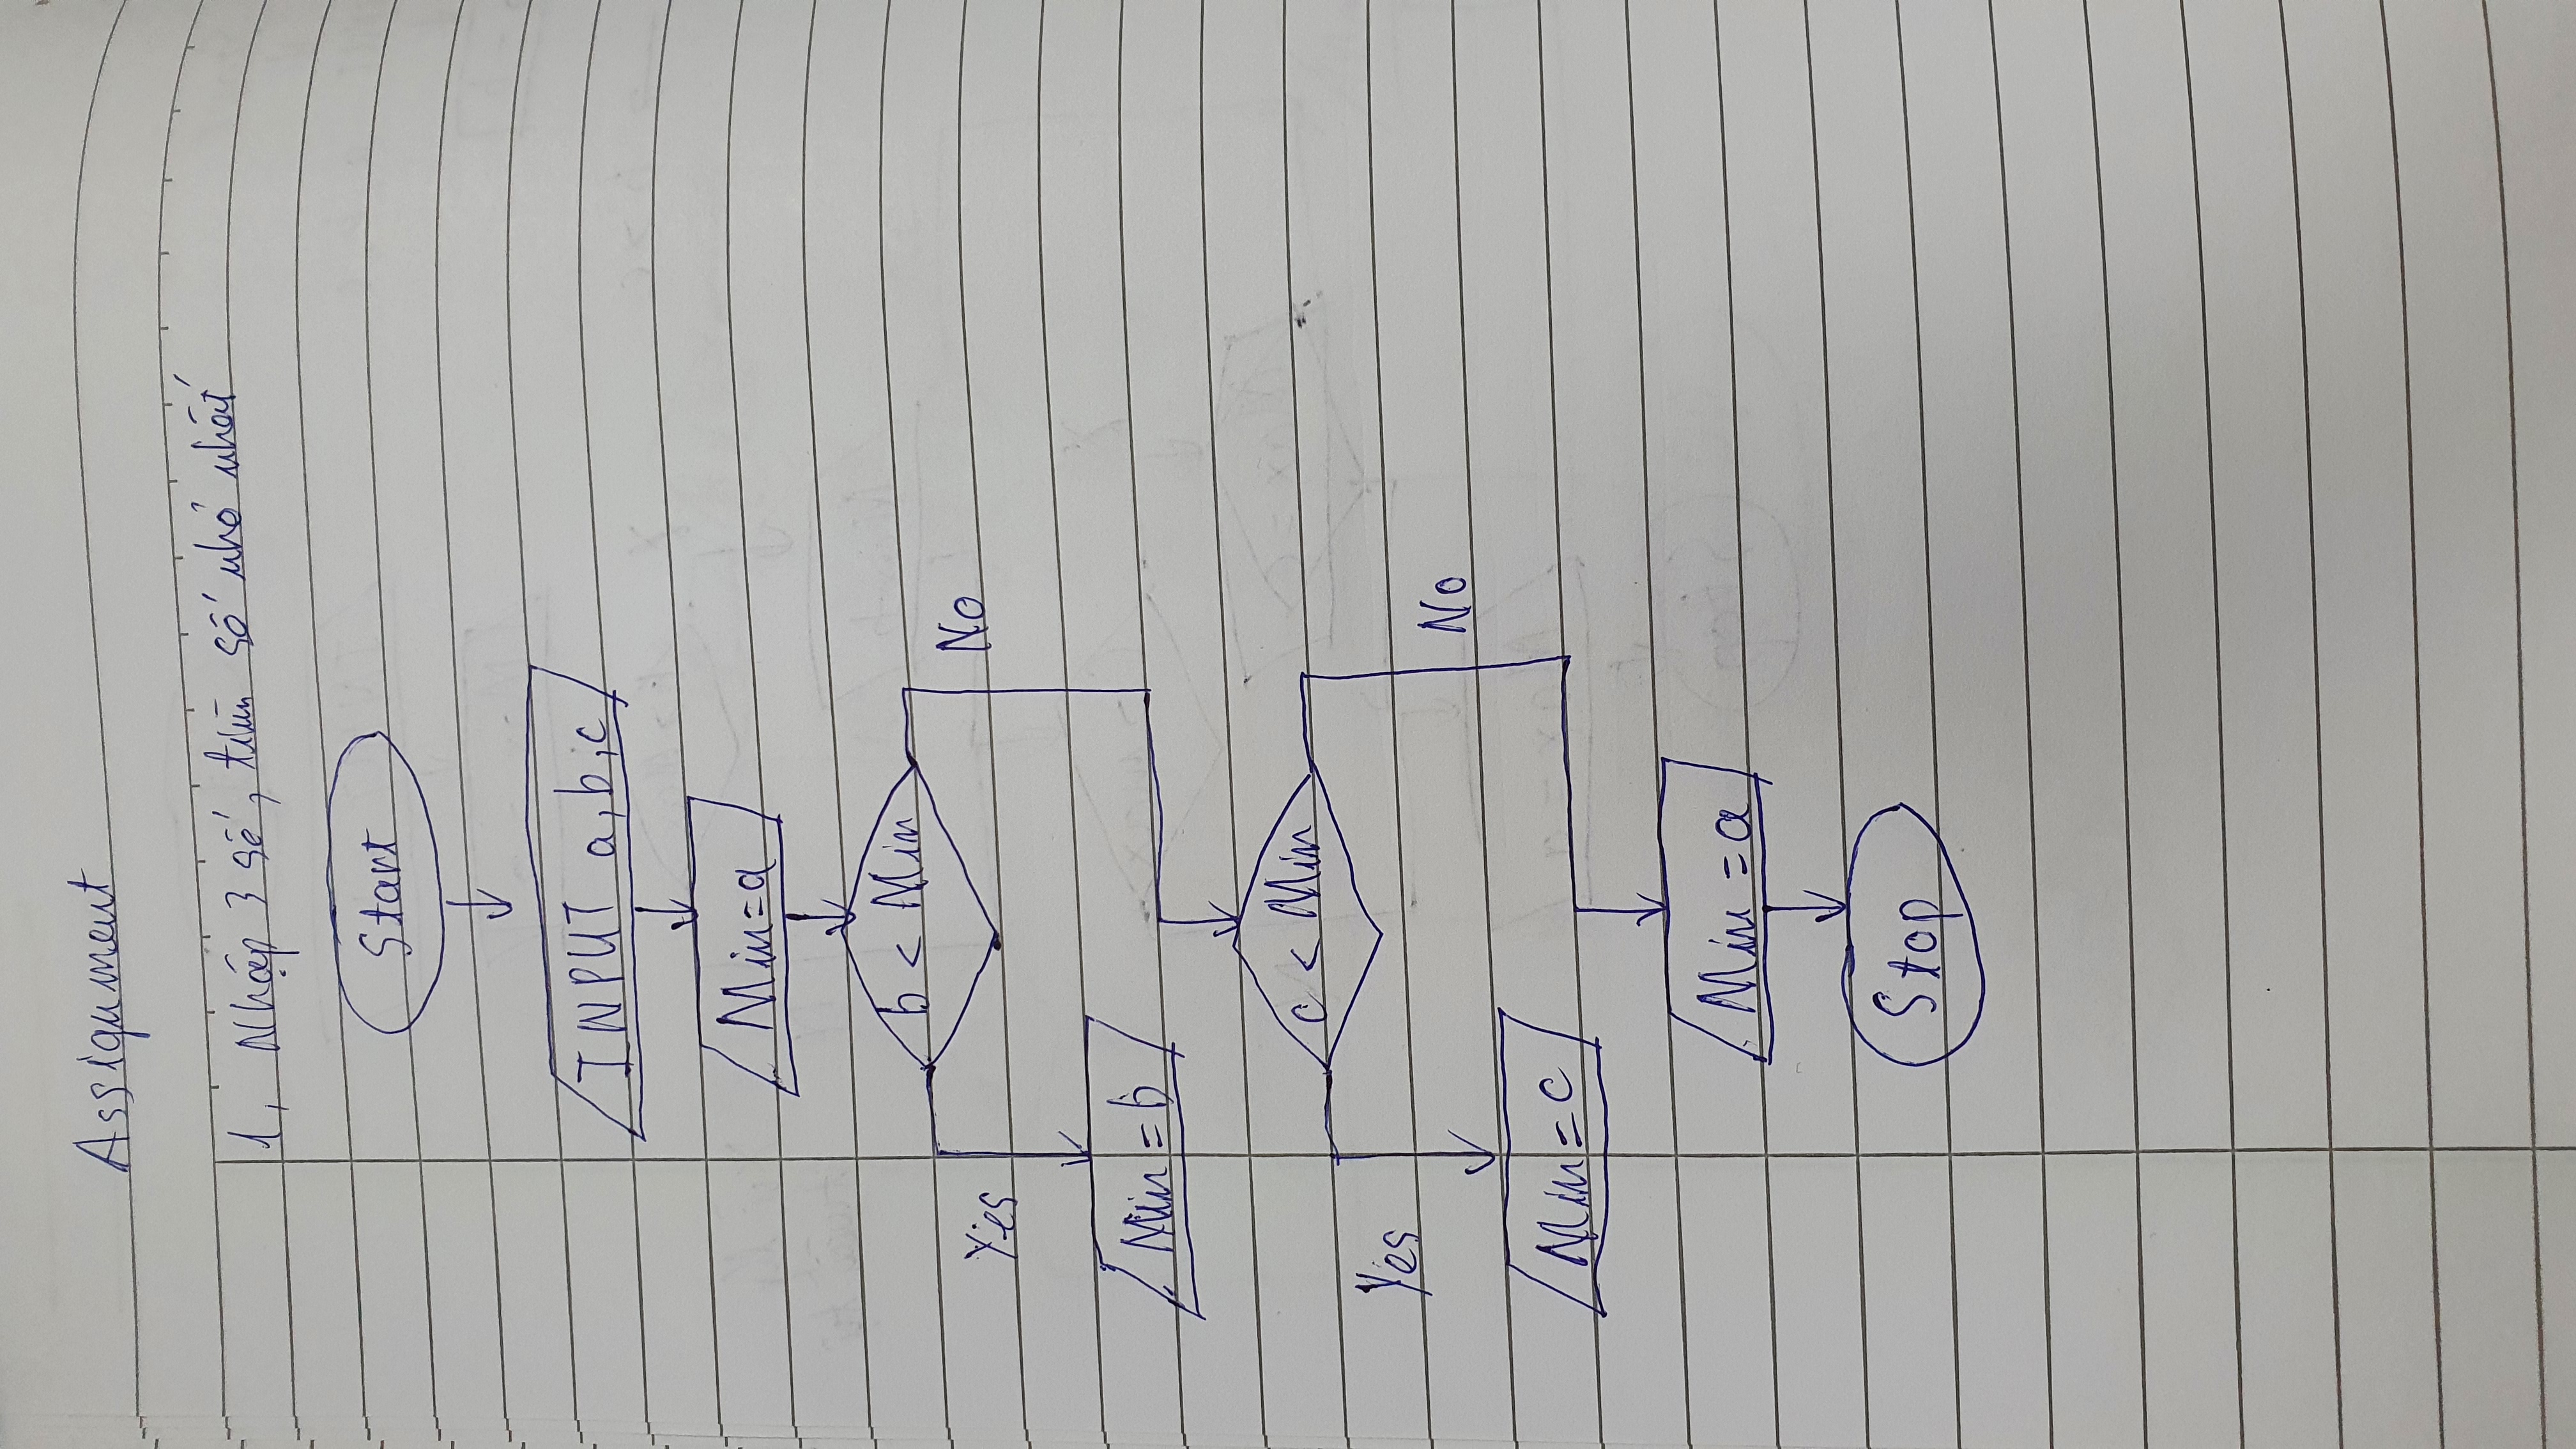 Assignment
1, Nhập 3 số, tìm số nhỏ nhất
Start
INPUT a, b, c
Min=a
b < Min
Yes
No
Min = b
c < Min
Yes
No
Min = c
Min = a
Stop